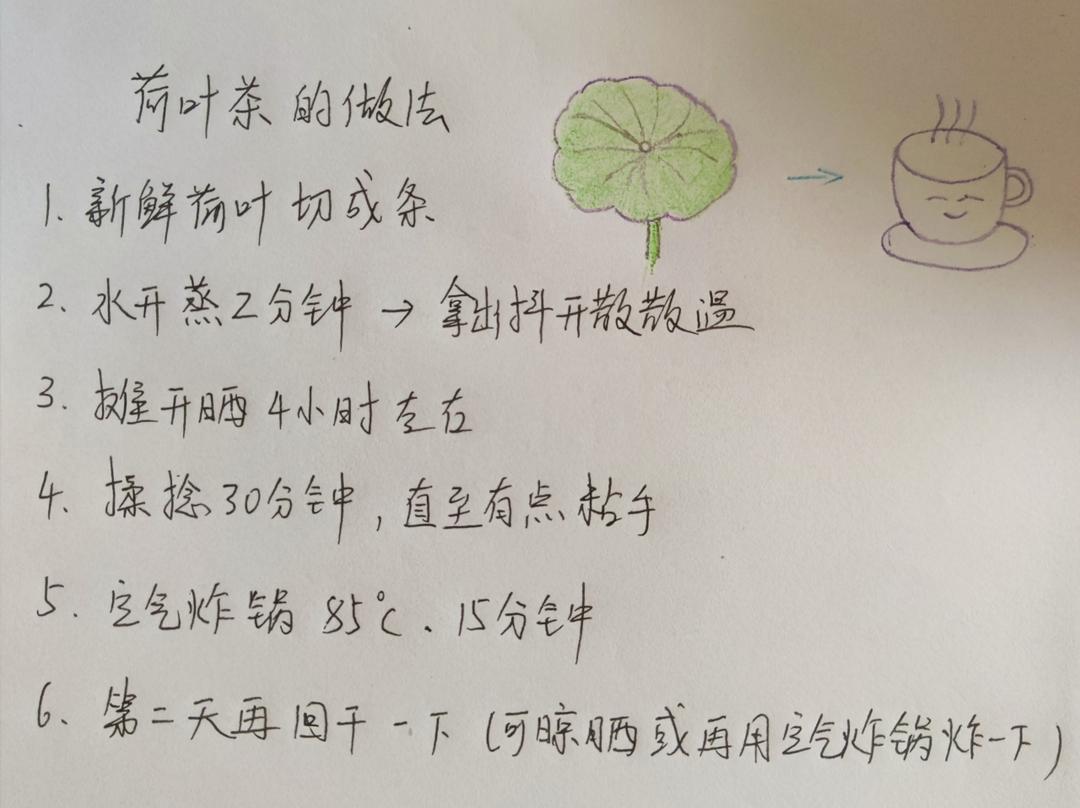 荷叶茶的做法
1. 新鲜荷叶切成条
2. 水开蒸2分钟 → 拿出抖开散散温
3. 摊开晒4小时左右
4. 揉捻30分钟,直至有点粘手
5. 空气炸锅 85℃、15分钟
6. 第二天再回干一下(可晾晒或再用空气炸锅炸一下)